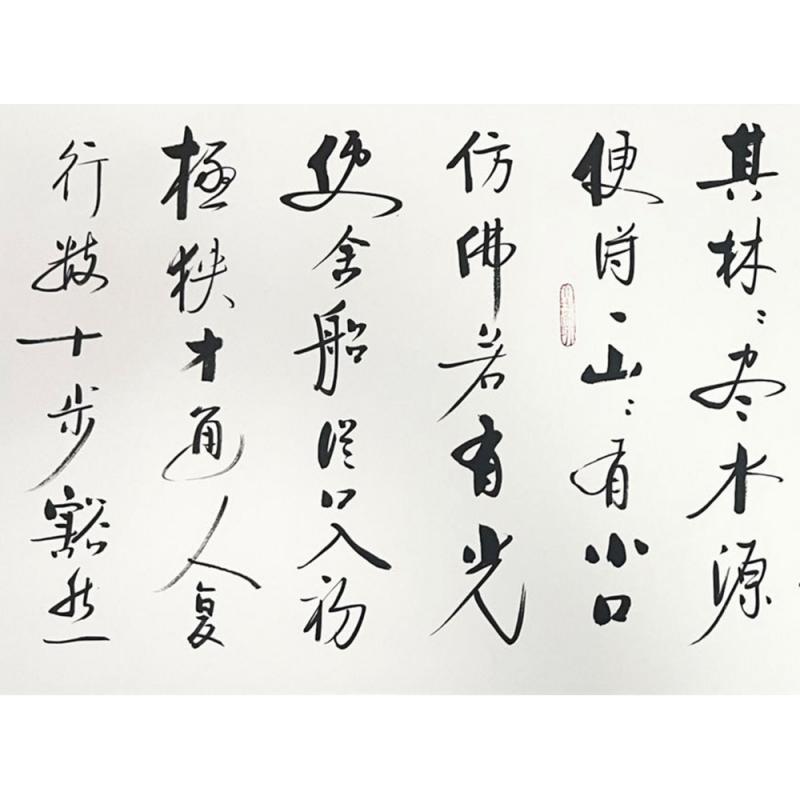 其林〻尽水源
便得一山〻有小口
仿佛若有光
便舍船从口入初
极狭才通人复
行数十步豁然一